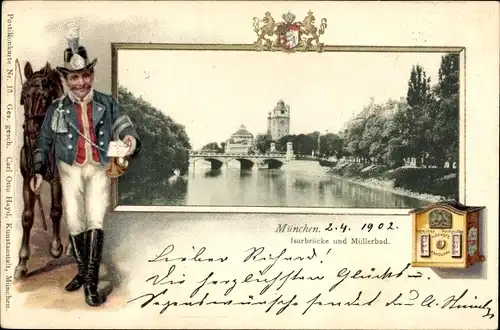 Postikonkarte Nr. 13. Ges. gesch. Carl Otto Hayd, Kunstanstalt, München.
München. 2.4.1902.
Isarbrücke und Müllerbad.
Lieber Richard!
Die herzlichsten Glücks- u.
Segenswünsche sendet du